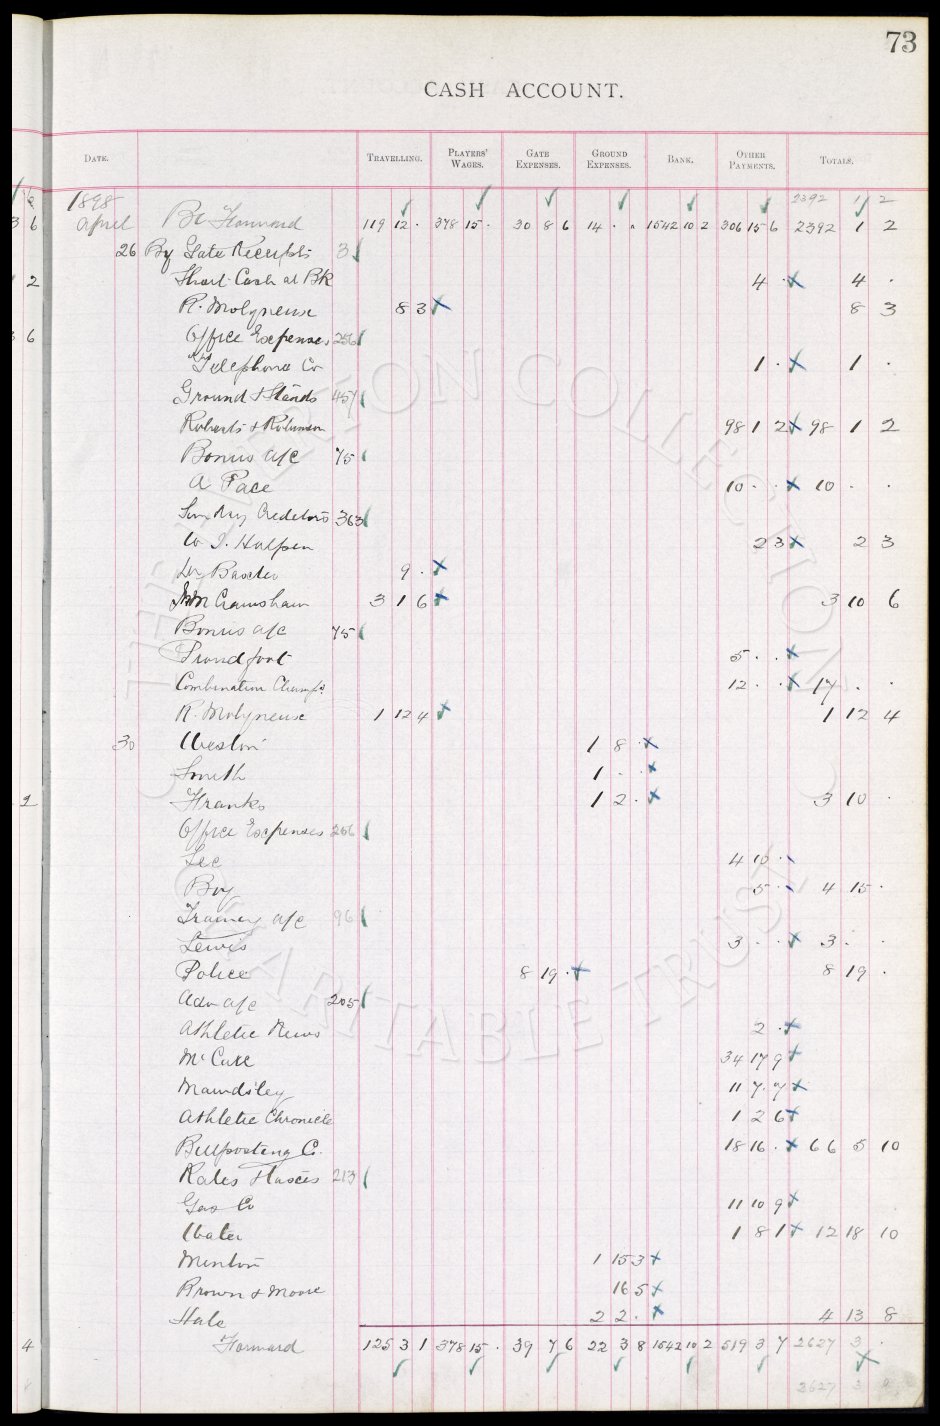 73
CASH ACCOUNT.
DATE. TRAVELLING. PLAYERS' WAGES. GATE EXPENSES. GROUND EXPENSES. BANK. OTHER PAYMENTS. TOTALS.
1898 2392 1 2
3 6 April Bt Forward 119 12 . 378 15 . 30 8 6 14 . . 1542 10 2 306 15 6 2392 1 2
26 By Gate Receipts 3
2 Short Cash at Bk 4 . 4 .
R. Molyneux 8 3 8 3
6 Office Expenses 256
Telephone Co 1 . 1 .
Ground & Stands 457
Roberts & Robinson 98 1 2 98 1 2
Bonus a/c 75
A Pace 10 . . 10 . .
Sundry Creditors 363
W J. Halpen 2 3 2 3
Dr Baxter 9 .
Cramshaw 3 1 6 3 10 6
Bonus a/c 75
Proudfoot 5 . .
Combination Champs 12 . . 17 . .
R. Molyneux 1 12 4 1 12 4
30 Weston 1 8 .
Smith 1 . .
2 Franks 1 2 . 3 10 .
Office Expenses 256
Lee 4 10 .
Boy 5 . 4 15 .
Training a/c 96
Lewis 3 . . 3 . .
Police 8 19 . 8 19 .
Adv a/c 205
Athletic News 2 .
McCake 34 17 9
Mawdsley 11 7 7
Athletic Chronicle 1 2 6
Billposting Co. 18 16 . 66 5 10
Rates & Taxes 213
Gas Co 11 10 9
Water 1 8 1 12 18 10
Minton 1 15 3
Brown & Moore 16 5
Hale 2 2 . 4 13 8
4 Forward 125 3 1 378 15 . 39 7 6 22 3 8 1542 10 2 519 3 7 2627 3 .
2627 3
THE EVERTON COLLECTION
CHARITABLE TRUST